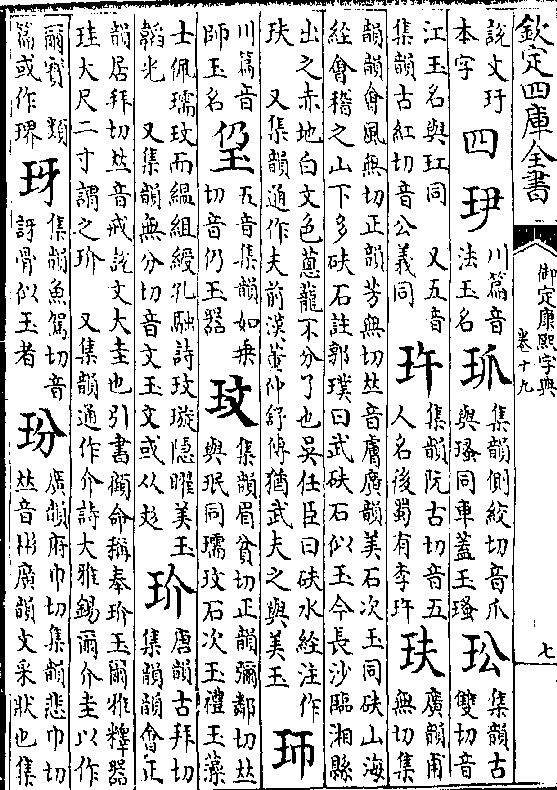 欽定四庫全書
御定康熙字典
卷十九
七
說文玗
本字
四
川篇音
法玉名
集韻側絞切音爪
與瑵同車蓋玉瑵
玜
集韻古
雙切音
江玉名與玒同 又五音
集韻古紅切音公義同
玝
集韻阮古切音五
人名後蜀有李玝
玞
廣韻甫
無切集
韻韻會風無切正韻芳無切𠀤音膚廣韻美石次玉同砆山海
經會稽之山下多砆石註郭璞曰武砆石似玉今長沙臨湘縣
出之赤地白文色蔥蘢不分了也吳任臣曰砆水經注作
玞 又集韻通作夫前漢董仲舒傳猶武夫之與美玉
川篇音
師玉名
五音集韻如乗
切音仍玉器
玟
集韻眉貧切正韻彌鄰切𠀤
與珉同瓀玟石次玉禮玉藻
士佩瓀玟而縕組綬孔融詩玟璇隱曜美玉
韜光 又集韻無分切音文玉文或从彣
玠
唐韻古拜切
集韻韻會正
韻居拜切𠀤音戒說文大圭也引書顧命稱奉玠玉爾雅釋器
珪大尺二寸謂之玠 又集韻通作介詩大雅錫爾介圭以作
爾寶 類
篇或作琾
玡
集韻魚駕切音
訝骨似玉者
玢
廣韻府巾切集韻悲巾切
𠀤音彬廣韻文采狀也集